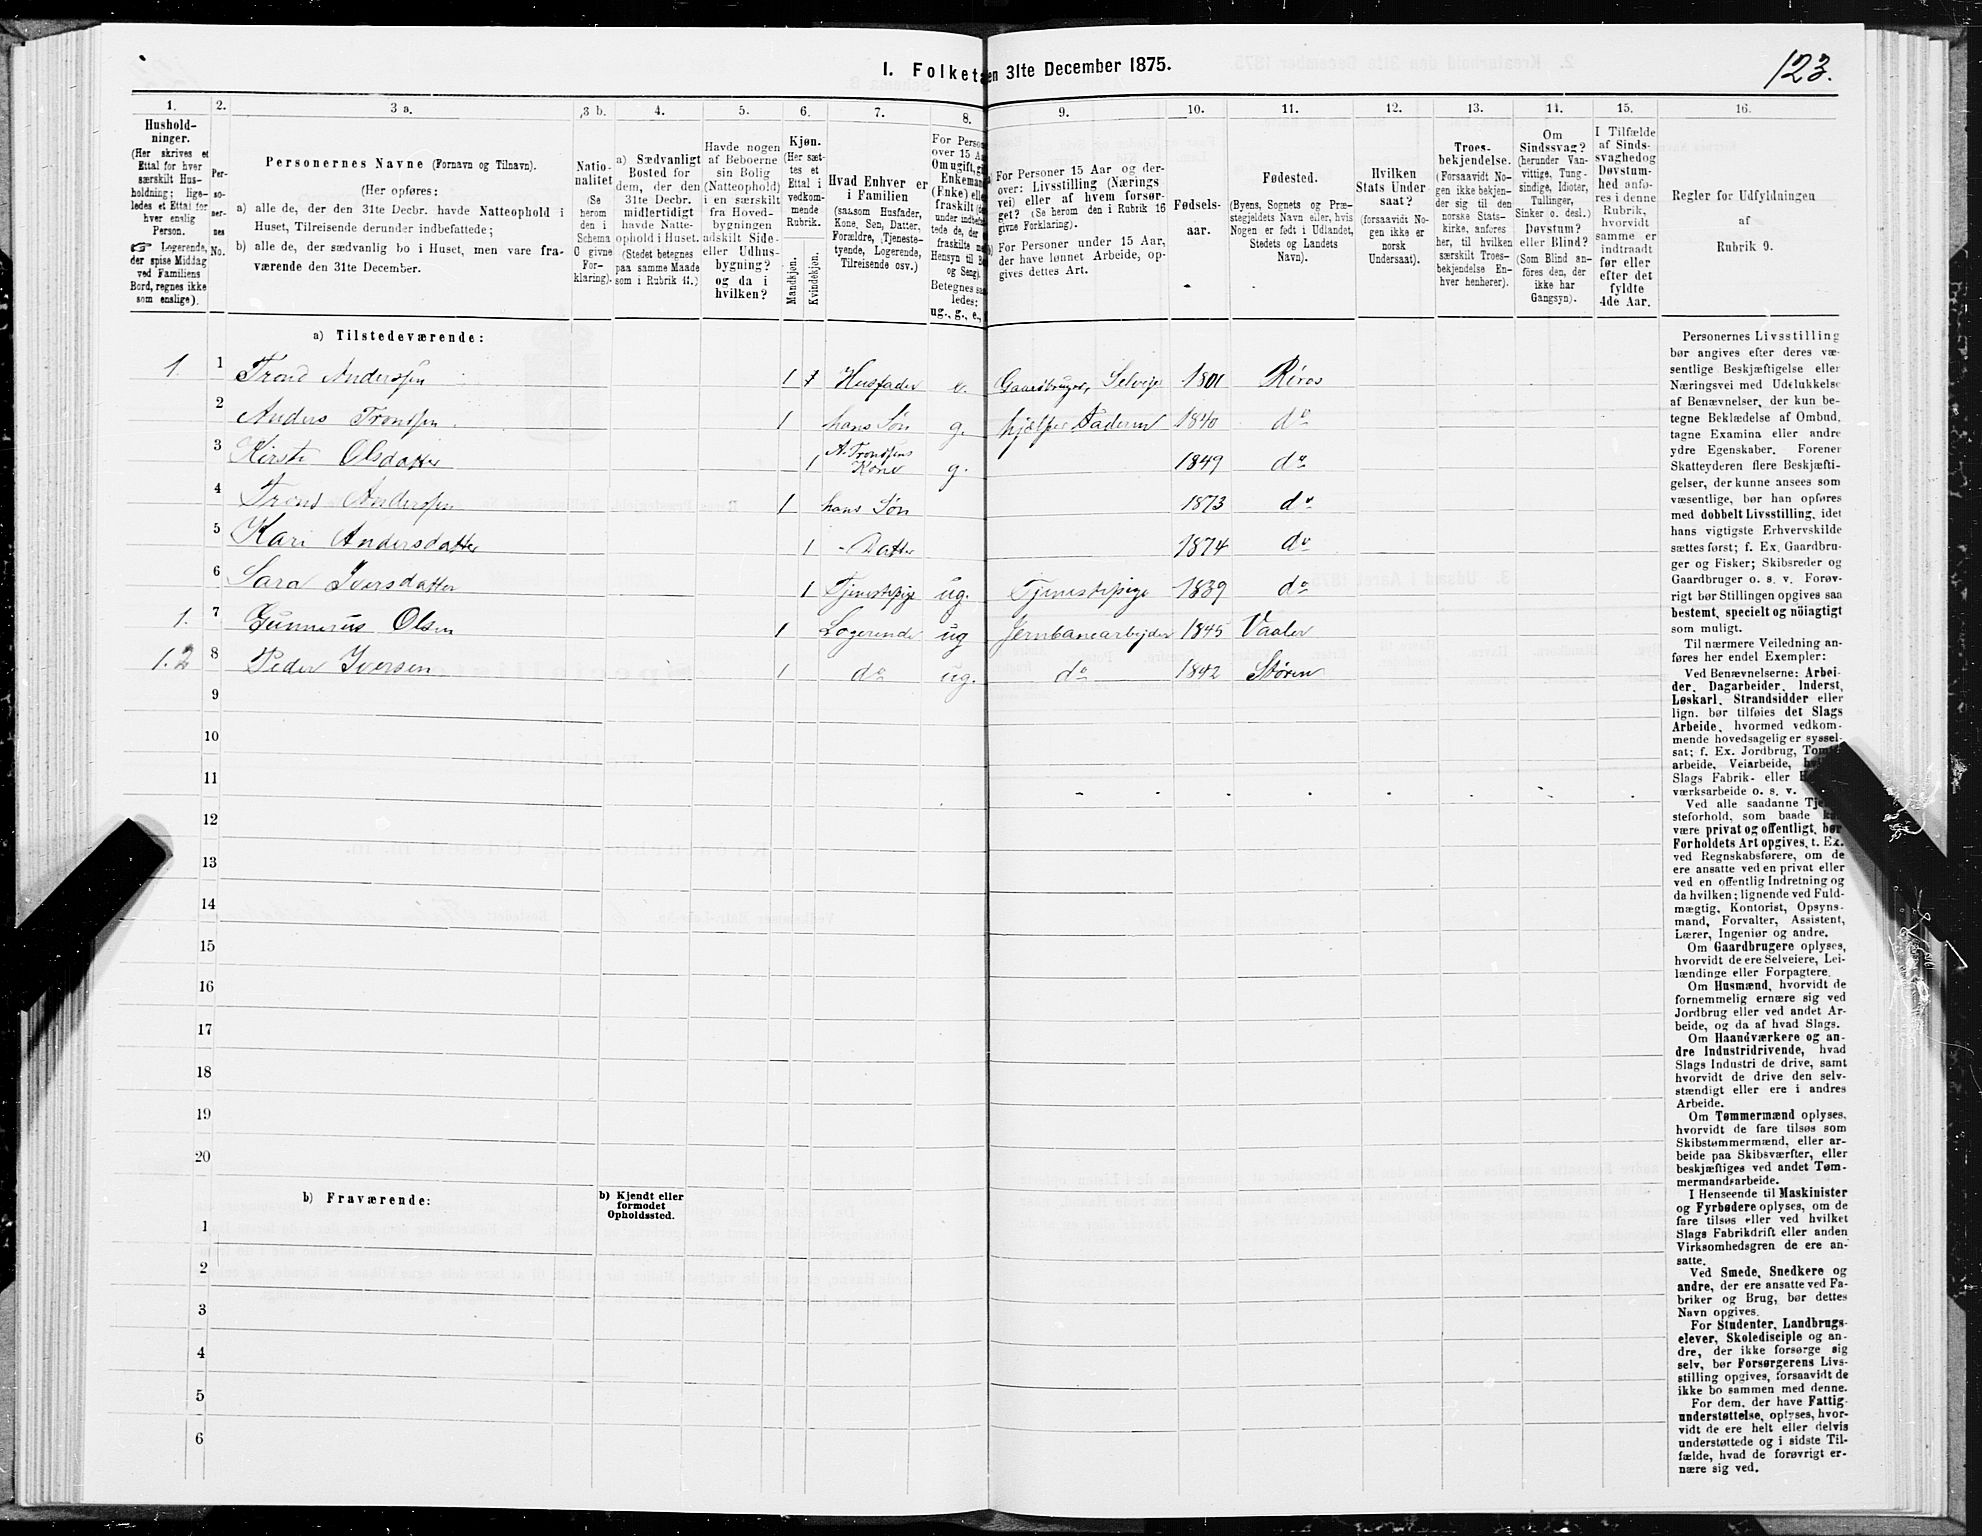 123.
I. Folketæ en 31te December 1875.
1. 2. 3 a. 3 b. 4. 5. 6. 7. 8. 9. 10. 11. 12. 13. 14. 15. 16.
Hushold-
ninger.
(Her skrives et
Ettal for hver
særskilt Hus-
holdning; lige-
ledes et Ettal for
hver enslig
Person.
☞ Logerende,
der spise Middag
ved Familiens
Bord, regnes ikke
som enslige).
Per-
so-
ner-
nes
No.
Personernes Navne (Fornavn og Tilnavn).
(Her opføres:
a) alle de, der den 31te Decbr. havde Natteophold i
Huset, Tilreisende derunder indbefattede;
b) alle de, der sædvanlig bo i Huset, men vare fra-
værende den 31te December.
Natio-
nalitet
(Se
herom
den i
Schema
O givne
For-
klaring).
a) Sædvanligt
Bosted for
dem, der den
31te Decbr.
midlertidigt
havde Natte-
ophold i Huset.
(Stedet betegnes
paa samme Maade
som i Rubrik 11.)
Havde nogen
af Beboerne
sin Bolig
(Natteophold)
i en særskilt
fra Hoved-
bygningen
adskilt Side-
eller Udhus-
bygning?
og da i
hvilken?
Kjøn.
(Her sæt-
tes et
Ettal i
vedkom-
mende
Rubrik.
Mandkjøn.
Kvindekjøn.
Hvad Enhver er
i Familien
(saasom Husfader,
Kone, Søn, Datter,
Forældre, Tjeneste-
tyende, Logerende,
Tilreisende osv.)
For Perso
over 15 Aa
Omugift, gi
Enkeman
(Enke) elle
fraskilt (de
under indbefat-
tede de, der e
fraskilte me
Hensyn til Bo
og Seng).
Betegnes saa
ledes:
ug., g., e.,
a) For Personer 15 Aar og der-
over: Livsstilling (Nærings
vei) eller af hvem forsør-
get? (Se herom den i Rubrik 16
givne Forklaring).
b) For Personer under 15 Aar,
der have lønnet Arbeide, op-
gives dettes Art.
Fødsels-
aar.
Fødested.
(Byens, Sognets og Præ-
stegjeldets Navn eller, hvis
Nogen er født i Udlandet,
Stedets og Landets
Navn).
Hvilken
Stats Under
saat?
(forsaavidt No-
gen ikke er
norsk
Undersaat).
Troes-
bekjendelse.
(Forsaavidt No-
gen ikke bekjen-
der sig til den
norske Stats-
kirke, anføres
her, til hvilken
særskilt Troes-
bekjendelse En-
hver henhører).
Om
Sindssvag?
(herunder Van-
vittige, Tung-
sindige, Idioter,
Tullinger,
Sinker o. desl.)
Døvstum?
eller Blind?
(Som Blind an-
føres den, der
ikke har
Gangsyn).
I Tilfælde
af Sinds-
svaghed og
Døvstum-
hed anfø-
res i denne
Rubrik,
hvorvidt
samme er
indtraadt
før eller
efter det
fyldte
4de Aar.
Regler for Udfyldningen
af
Rubrik 9.
a) Tilstedeværende:
1. 1 Trond Andersen 1 Husfader e. Gaardbruger, Selveje 1801 Röros
2 Anders Trondsen 1 hans Søn g. hjælper Faderen 1840 do
3 Kirsti Olsdatter 1 A. Trondsens Kone g. 1849 do
4 Trond Andersen 1 hans Søn 1873 do
5 Kari Andersdatter 1 - Datter 1874 do
6 Sara Iversdatter 1 Tjenestepige ug. Tjenestepige 1839 do
1. 7 Gunnerus Olsen 1 Logerende ug Jernbanearbejder 1845 Vaaler
1. 2 8 Peder Iversen 1 do ug. do 1842 Støren
9
10
11
12
13
14
15
16
17
18
19
20
b) Fraværende:
b) Kjendt eller
formodet
Opholdssted.
1
2
3
4
5
6
Personernes Livsstilling
bør angives efter deres væ-
sentlige Beskjæftigelse eller
Næringsvei med Udelukkelse
af Benævnelser, der kun be-
tegne Beklædelse af Ombud,
tagne Examina eller andre
ydre Egenskaber. Forener
Skatteyderen flere Beskjæfti-
gelser, der kunne ansees som
væsentlige, bør han opføres
med dobbelt Livsstilling, idet
hans vigtigste Erhvervskilde
sættes først; f. Ex. Gaardbru-
ger og Fisker; Skibsreder og
Gaardbruger o. s. v. Forøv-
rigt bør Stillingen opgives saa
bestemt, specielt og nöiagtigt
som muligt.
Til nærmere Veiledning an-
føres her endel Exempler:
Ved Benævnelserne: Arbei-
der, Dagarbeider, Inderst,
Løskarl, Strandsidder eller
lign. bør tilføies det Slags
Arbeide, hvormed vedkom-
mende hovedsagelig er syssel-
sat; f. Ex. Jordbrug,
arbeide, Veiarbeide,
Slags Fabrik- eller
værksarbeide o. s. v.
Ved alle saadanne
steforhold, som baade
være privat og offentligt, bør
Forholdets Art opgives, t. Ex.
ved Regnskabsførere, om de
ere ansatte ved en privat eller
ved en offentlig Indretning og
da hvilken; lignende ved Fuld-
mægtig, Kontorist, Opsyns-
mand, Forvalter, Assistent,
Lærer, Ingeniør og andre.
Om Gaardbrugere oplyses,
hvorvidt de ere Selveiere, Lei-
lændinge eller Forpagtere.
Om Husmænd, hvorvidt de
fornemmelig ernære sig ved
Jordbrug eller ved andet Ar-
beide, og da af hvad Slags.
Om Haandværkere og an-
dre Industridrivende, hvad
Slags Industri de drive, samt
hvorvidt de drive den selv-
stændigt eller ere i andres
Arbeide.
Om Tømmermænd oplyses,
hvorvidt de fare tilsøs som
Skibstømmermænd, eller ar-
beide paa Skibsværfter, eller
beskjæftiges ved andet Tøm-
mermandsarbeide.
I Henseende til Maskinister
og Fyrbødere oplyses, om de
fare tilsøs eller ved hvilket
Slags Fabrikdrift eller anden
Virksomhedsgren de ere an-
satte.
Ved Smede, Snedkere og
andre, der ere ansatte ved Fa-
briker og Brug, bør dettes
Navn opgives.
For Studenter, Landbrugs-
elever, Skoledisciple og an-
dre, der ikke forsørge sig
selv, bør Forsørgerens Livs-
stilling opgives, forsaavidt de
ikke bo sammen med denne.
For dem, der have Fattig-
understøttelse, oplyses, hvor-
vidt de ere helt eller delvis
understøttede og i sidste Til-
fælde, hvad de forøvrigt er-
nære sig ved.